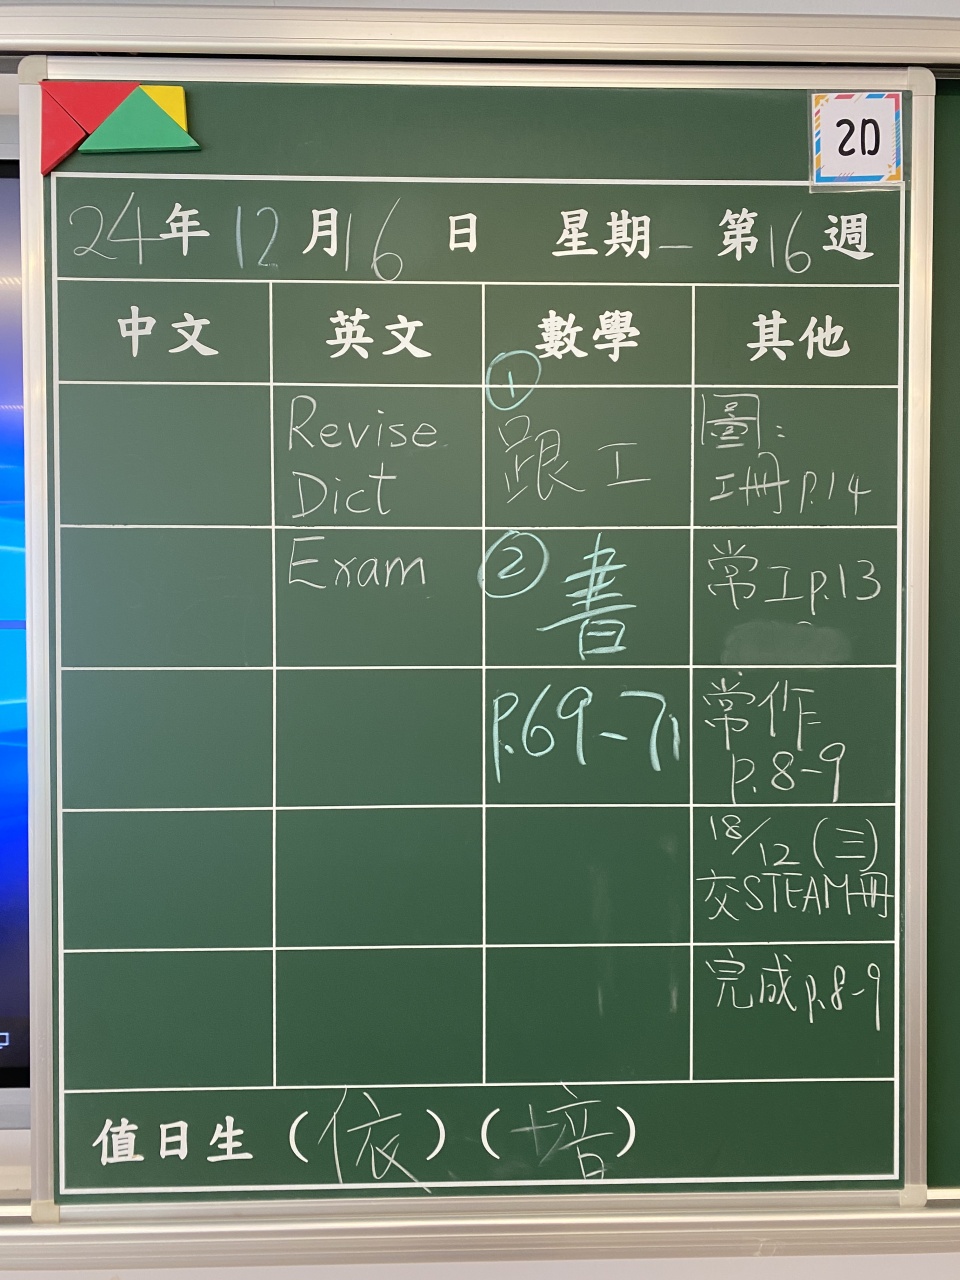 2D
24年12月16日 星期一 第16週
中文 英文 數學 其他
Revise
Dict
① 跟工
圖：
工冊 p.14
Exam
② 書
常工p.13
p.69-71
常作
p.8-9
18/12 (三)
交STEAM冊
完成p.8-9
值日生（依）（培）